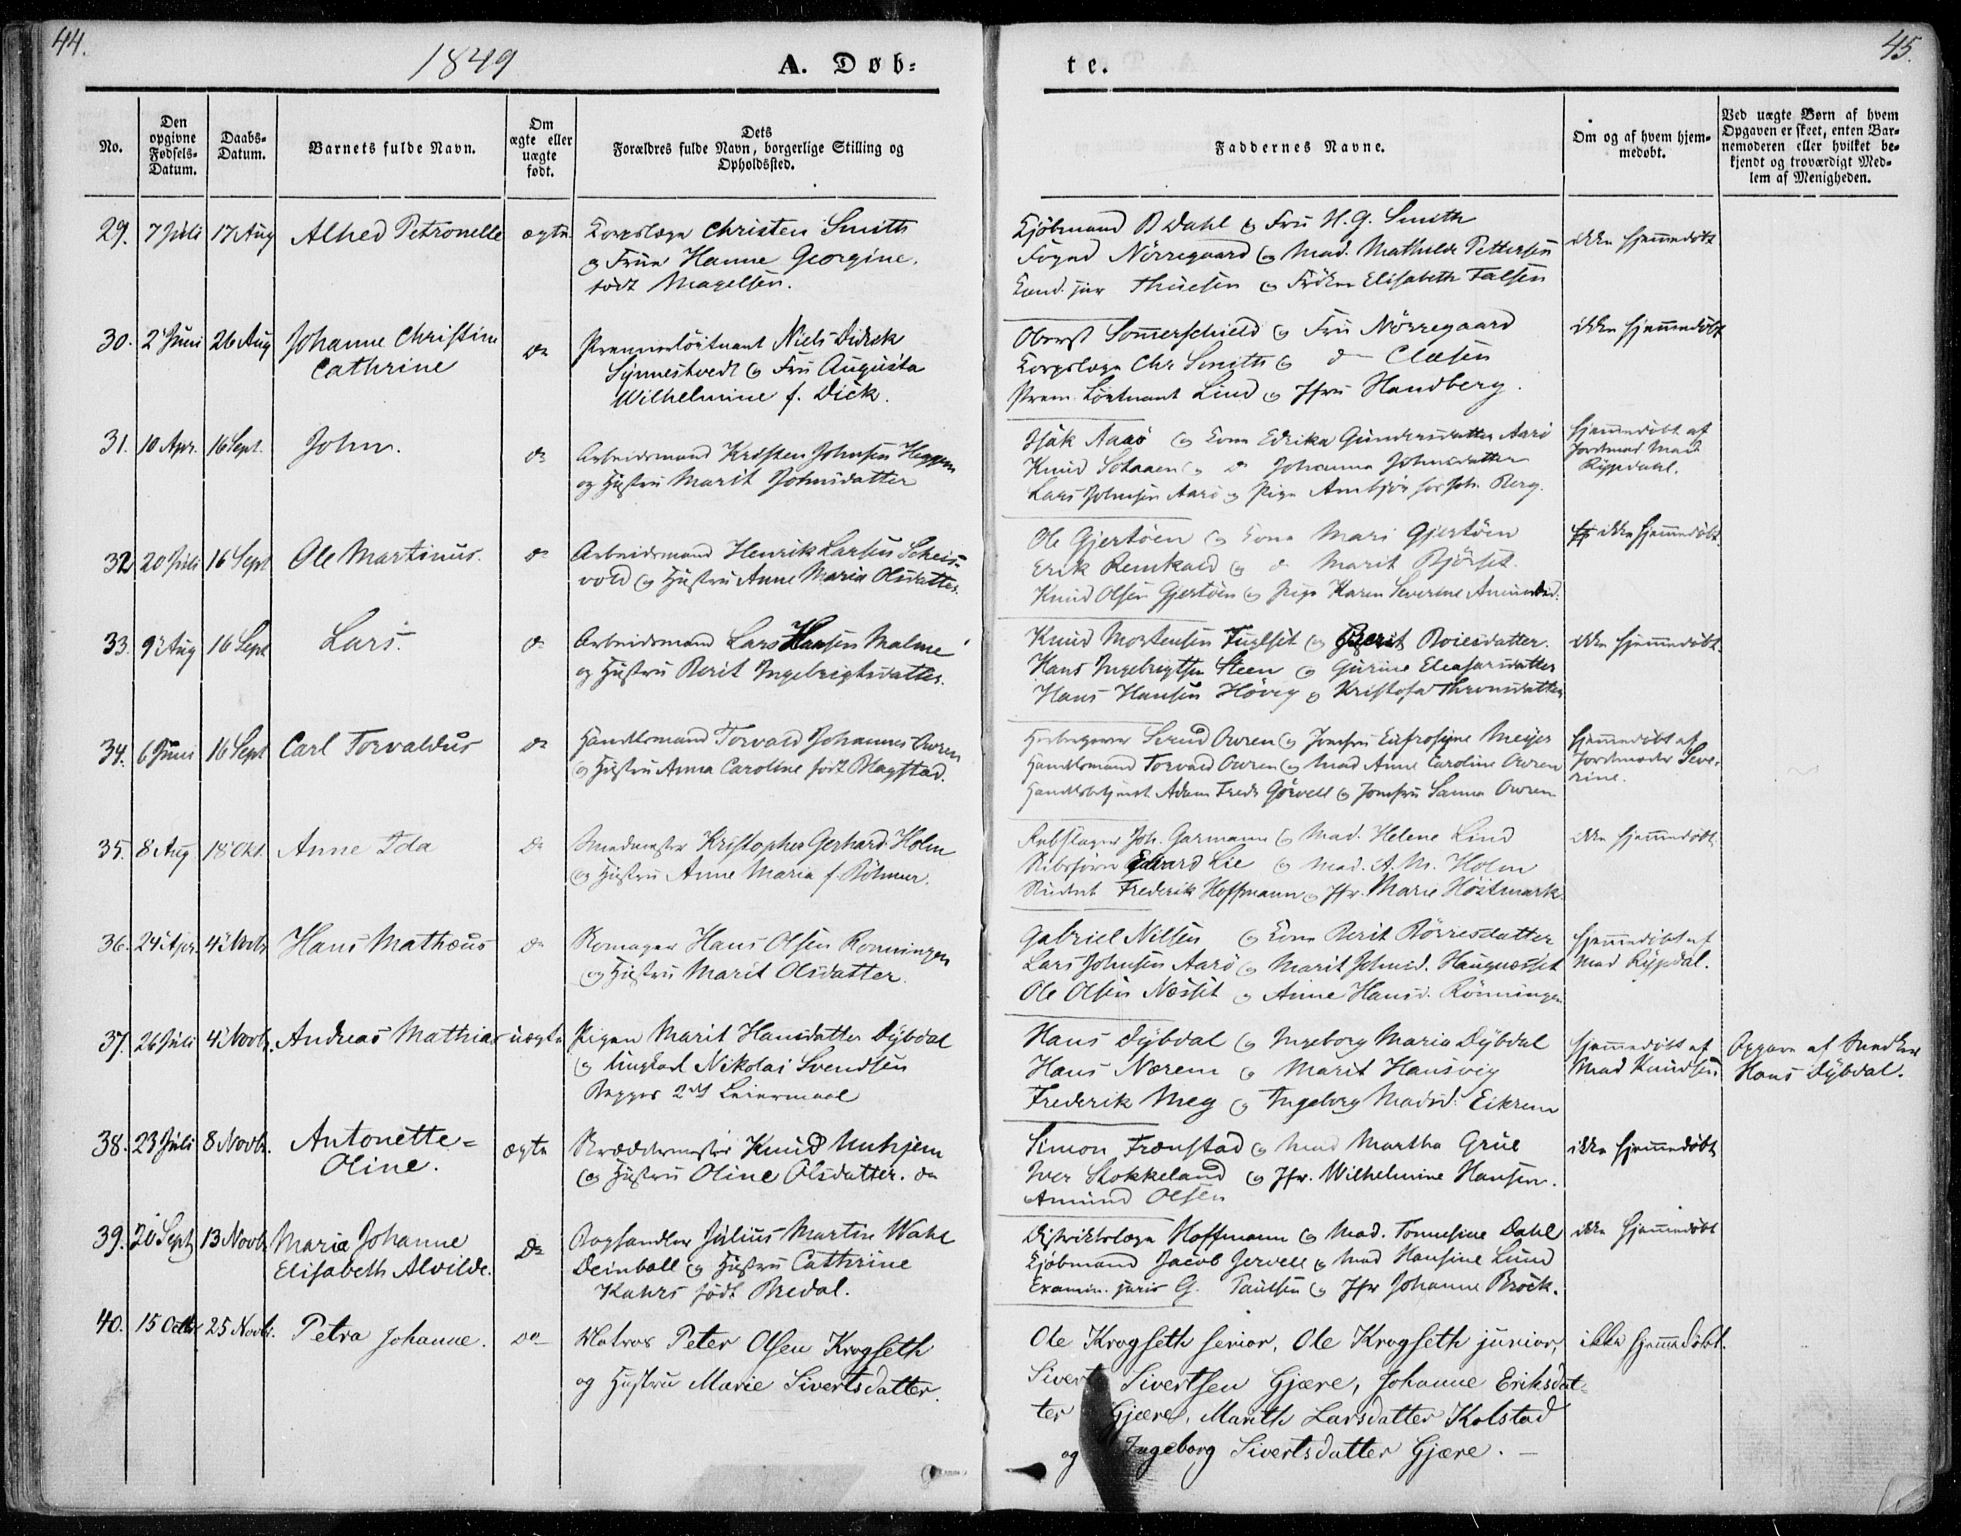 44.
1849
A. Døb-
te.
45.
No.
Den opgivne Fødsels-Datum.
Daabs-Datum.
Barnets fulde Navn.
Om ægte eller uægte født.
Dets Forældres fulde Navn, borgerlige Stilling og Opholdssted.
Faddernes Navne.
Om og af hvem hjem-medøbt.
Ved uægte Børn af hvem Opgaven er skeet, enten Bar-nemoderen eller hvilket be-kjendt og troværdigt Med-lem af Menigheden.
29. 7 Juli 17 Aug Alhed Petronelle ægte Korpslæge Christen Smith
og Frue Hanne Georgine.
født Magelsen.
Kjøbmand B Dahl & Fru H. G. Smith
Foged Nörregaard & Mad. Mathilde Pettersen
Cand. jur Thuesen & Frøken Elisabeth Falsen
ikke hjemmedøbt
30. 2 Juni 26 Aug Johanne Christine
Cathrine
do
Premierløitnant Niels Didrik
Synnestvedt & Fru Augusta
Wilhelmine f. Dick.
Oberst Somerschield & Fru Nörregaard
Korpslæge Chr. Smith & do Clasen
Prem. Löitnant Lind & Jfru Handberg.
ikke hjemmedøbt
31. 10 Apr. 16 Sept. John. do Arbeidsmand Kristen Johnsen Heggem
og Hustru Marit Johnsdatter
Isak Aarö & Kone Edrika Gundersdatter Aarö
Knud Solaaen & do Johanna Johnsdatter
Lars Johnsen Aarö & Pige Berg.
hjemmedøbt af
Jordmod. Mad
Rypdahl.
32 20 Juli 16 Sept Ole Martinus. do Arbeidsmand Henrik Larsen Scheis-
vold & Hustru Anne Maria Olsdatter.
Ole Gjertöen & Kone Mari Gjertöen
Erik Remkald & do Marit Bjørset.
Knud Olsen Gjertöen & Pige Karen Severine
ikke hjemmedøbt
33. 9 Aug 16 Sept Lars. do Arbeidsmand Lars Hansen Malme
og Hustru Berit Ingebrigtsdatter.
Knud Mortensen Fuglset & Berit Boiesdatter.
Hans Ingebrigtsen Steen & Gurine Eleasarsdatter
Hans Hansen Høvig & Kristofa Thronsdatter
ikke hjemmedøbt
34. 6 Juni 16 Sept Carl Torvaldus do Handelsmand Torvald Johannes Owren
& Hustru Anna Caroline født Magstad.
Svend Owren & Jomfru Eufrosyne Meyer
Handelsmand Torvald Owren & Mad Anne Caroline Owren
Handelsbetjent Adam Fredr Gørvell & Jomfru Sanna Owren
hjemmedøbt af
Jordmoder Seve-
rine.
35. 8 Aug 18 Okt. Anne Ida do Smedmester Kristopher Gerhard Holm
& Hustru Anne Maria f. Röhmer.
Rebslager Joh. Garmann & Mad. Helene Lind
Skibsfører Edvard Lie & Mad. A. M. Holm
Student Frederik Hoffmann & Jfr. Marie Høstmark
ikke hjemmedøbt
36. 24 Apr. 4 Novbr Hans Mathæus do Skomager Hans Olsen Rönningen
& Hustru Marit Olsdatter.
Gabriel Nilsen & Kone Berit Börresdatter
Lars Johnsen Aarö & Marit Johnsd. Haugnæsset
Ole Olsen Næsset & Anne Hansd. Rönningen
hjemmedøbt af
Mad Rypdal.
37. 26 Juli 4 Novbr. Andreas Mathias uægte Pigen Marit Hansdatter Dybdal
& Ungkarl Nikolai Svendsen
Begges 2det Leiermaal
Hans Dybdal & Ingeborg Maria Dybdal
Hans Nærem & Marit Hansvig
Frederik Meg & Ingeborg Madsd. Eikrem
hjemmedøbt af
Mad Knudsen
Opgave af Snedker
Hans Dybdal.
38. 23 Juli 8 Novbr. Antonette-
Oline.
ægte Skræddermester Knud Unhjem
& Hustru Oline Olsdatter. do
Simon Frænstad & Mad Martha Grue
Iver Stokkeland & Jfr. Wilhelmine Hansen.
Amund Olsen
ikke hjemmedøbt
39. 20 Sept 13 Novbr Maria Johanne
Elisabeth Alvilde.
do Boghandler Julius Martin Wahl
Deinboll & Hustru Cathrine
Kahrs født Bredal.
Distriktslæge Hoffmann & Mad. Tomesine Dahl
Kjøbmand Jacob Jervell & Mad Hansine Lund
Examin. juris G. Paulsen & Jfr Johanne Brock.
ikke hjemmedøbt
40. 15 Octbr 25 Novbr. Petra Johanne. do Matros Peter Olsen Krogseth
og Hustru Marie Sivertsdatter.
Ole Krogseth senior, Ole Krogseth junior,
Sivert Sivertsen Gjære, Johanne Eriksdat-
ter Gjære, Marith Larsdatter Kolstad
og Ingeborg Sivertsdatter Gjære. —
ikke hjemmedøbt.